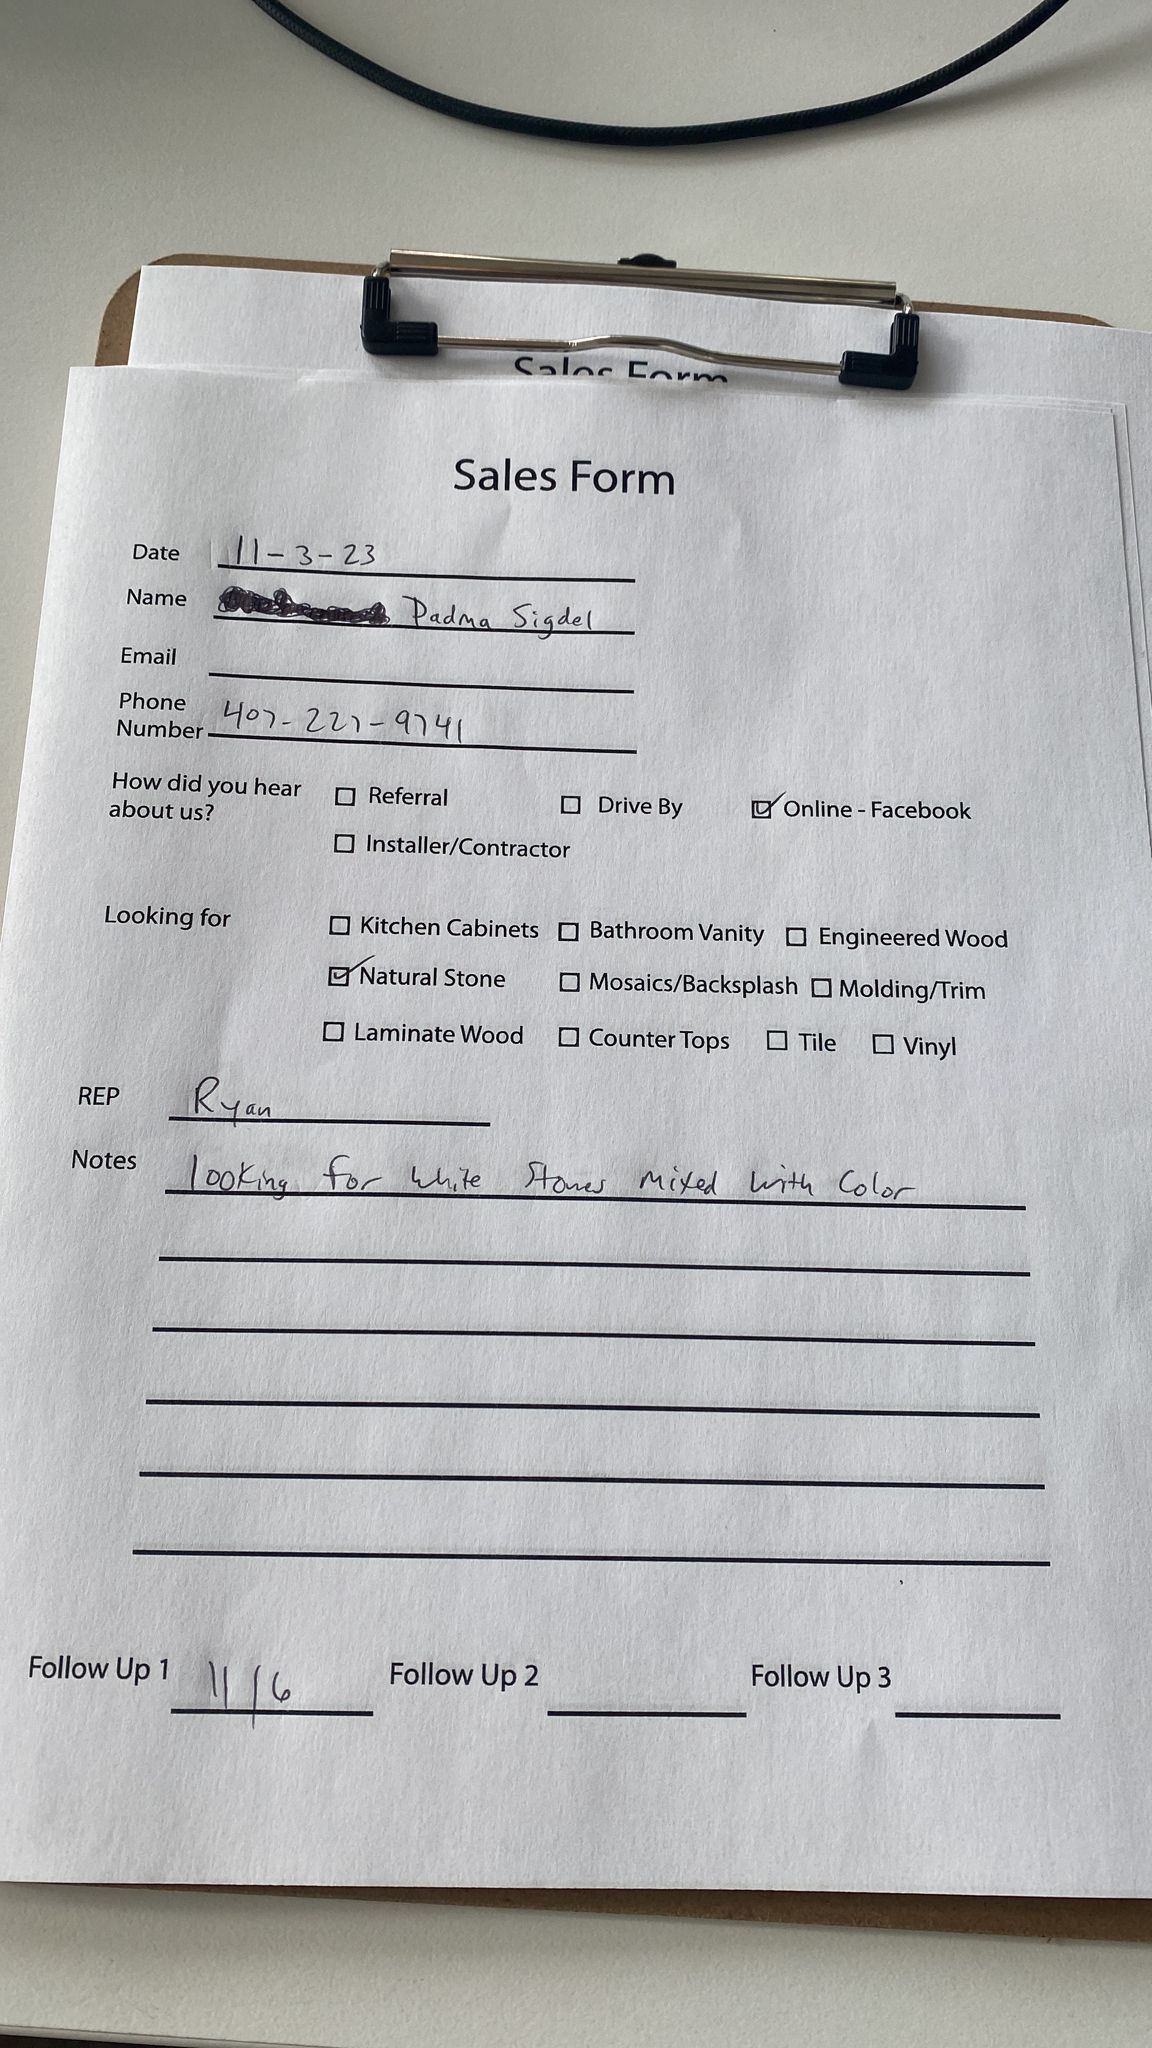 Sales Form
Sales Form
Date 11-3-23
Name Padma Sigdel
Email
Phone
Number 407-227-9741
How did you hear
about us?
☐ Referral ☐ Drive By ☑ Online - Facebook
☐ Installer/Contractor
Looking for ☐ Kitchen Cabinets ☐ Bathroom Vanity ☐ Engineered Wood
☑ Natural Stone ☐ Mosaics/Backsplash ☐ Molding/Trim
☐ Laminate Wood ☐ Counter Tops ☐ Tile ☐ Vinyl
REP Ryan
Notes looking for white Stones mixed with Color
Follow Up 1 11/6 Follow Up 2 Follow Up 3